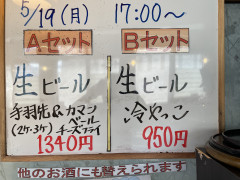 5/19(月) 17:00〜
Aセット Bセット
生ビール 生ビール
手羽先&カマンベールチーズフライ 冷やっこ
(2ケ・3ケ)
1340円 950円
他のお酒にも替えられます